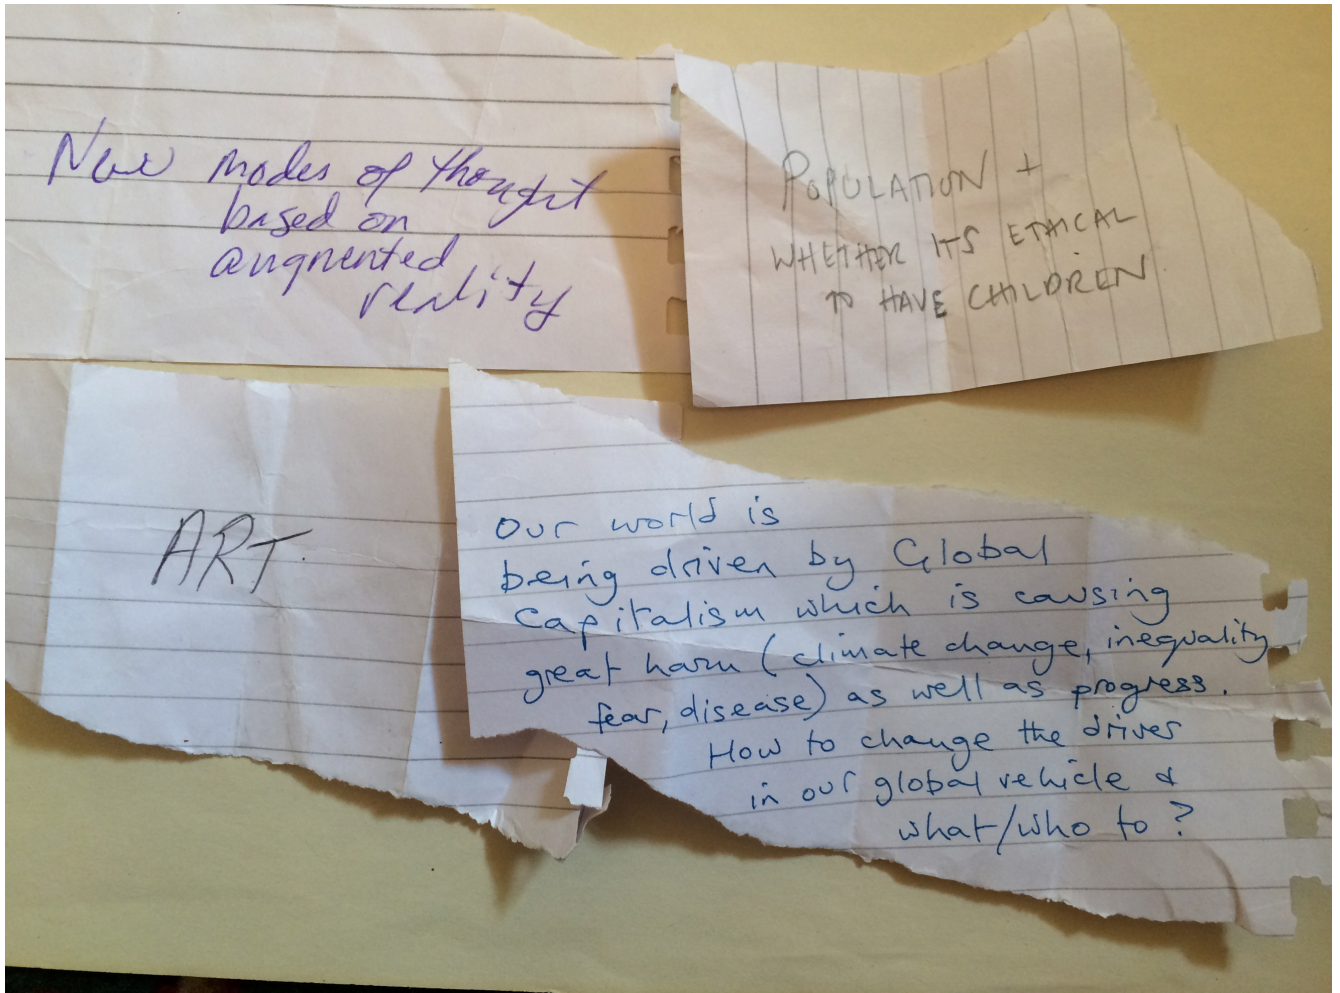 New modes of thought
based on
augmented
reality
POPULATION +
WHETHER ITS ETHICAL
TO HAVE CHILDREN
ART
Our world is
being driven by Global
Capitalism which is causing
great harm (climate change, inequality
fear, disease) as well as progress.
How to change the driver
in our global vehicle &
what/who to?